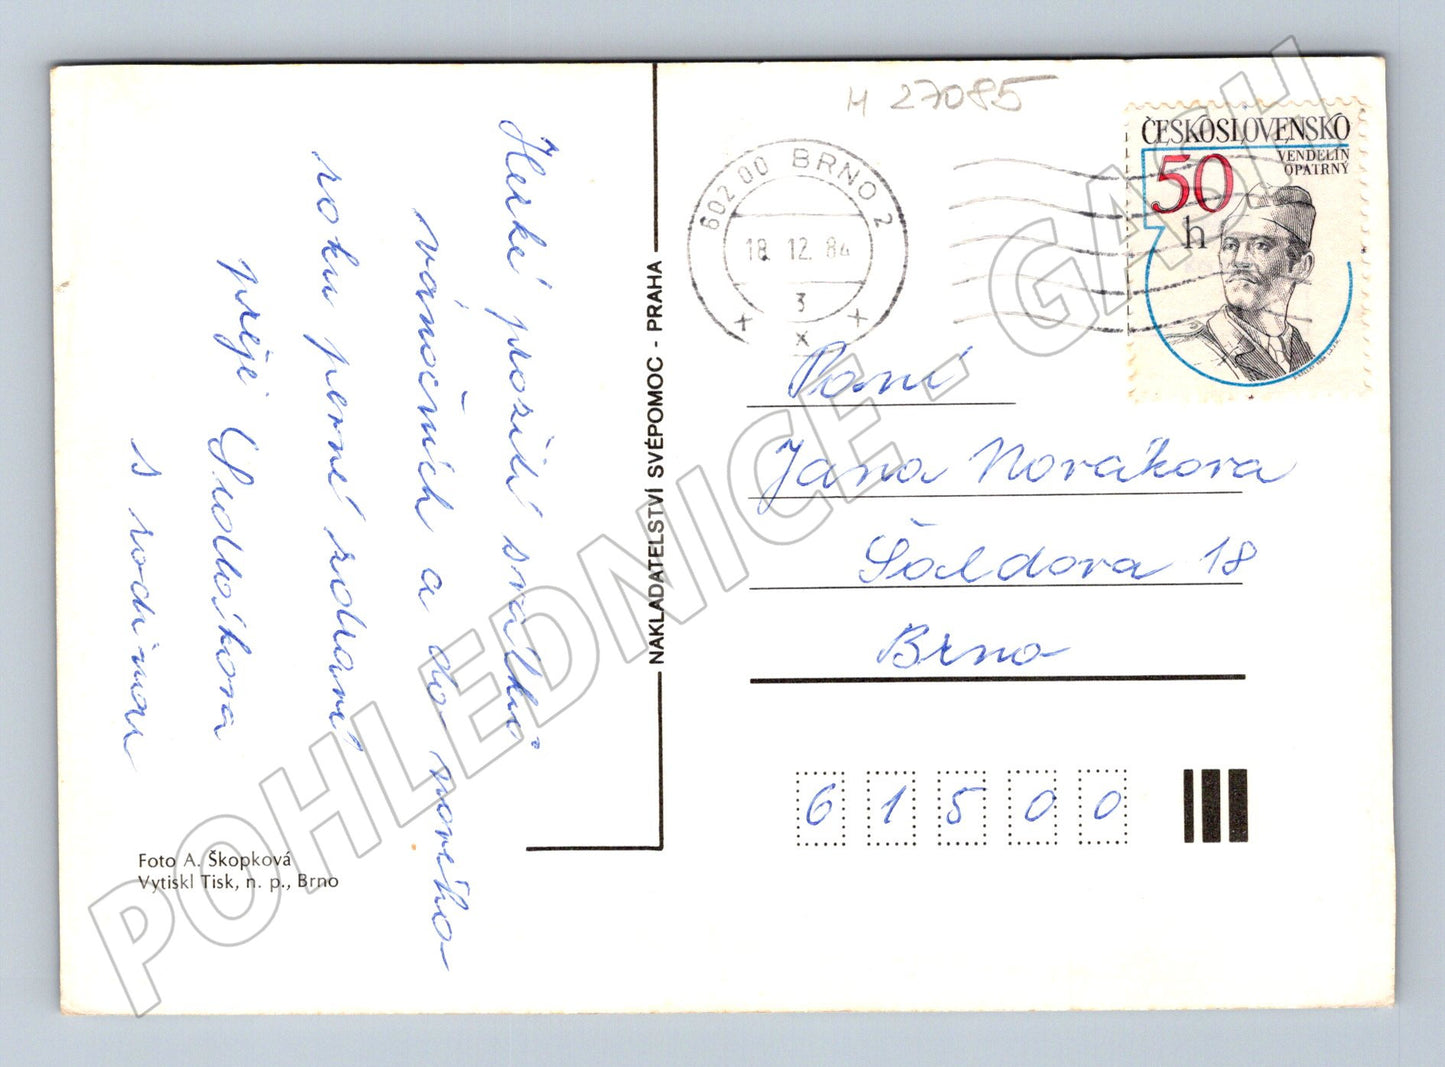 Hezké prožití svátků
vánočních a do nového
roku pevné zdraví
přeje Sedláková
s rodinou
Foto A. Škopková
Vytiskl Tisk, n. p., Brno
NAKLADATELSTVÍ SVÉPOMOC - PRAHA
M 27085
602 00 BRNO 2
18. 12. 84
3
x
ČESKOSLOVENSKO
50
h
VENDELÍN
OPATRNÝ
Paní
Jana Nováková
Šaldova 18
Brno
61500
POHLEDNICE - GASH